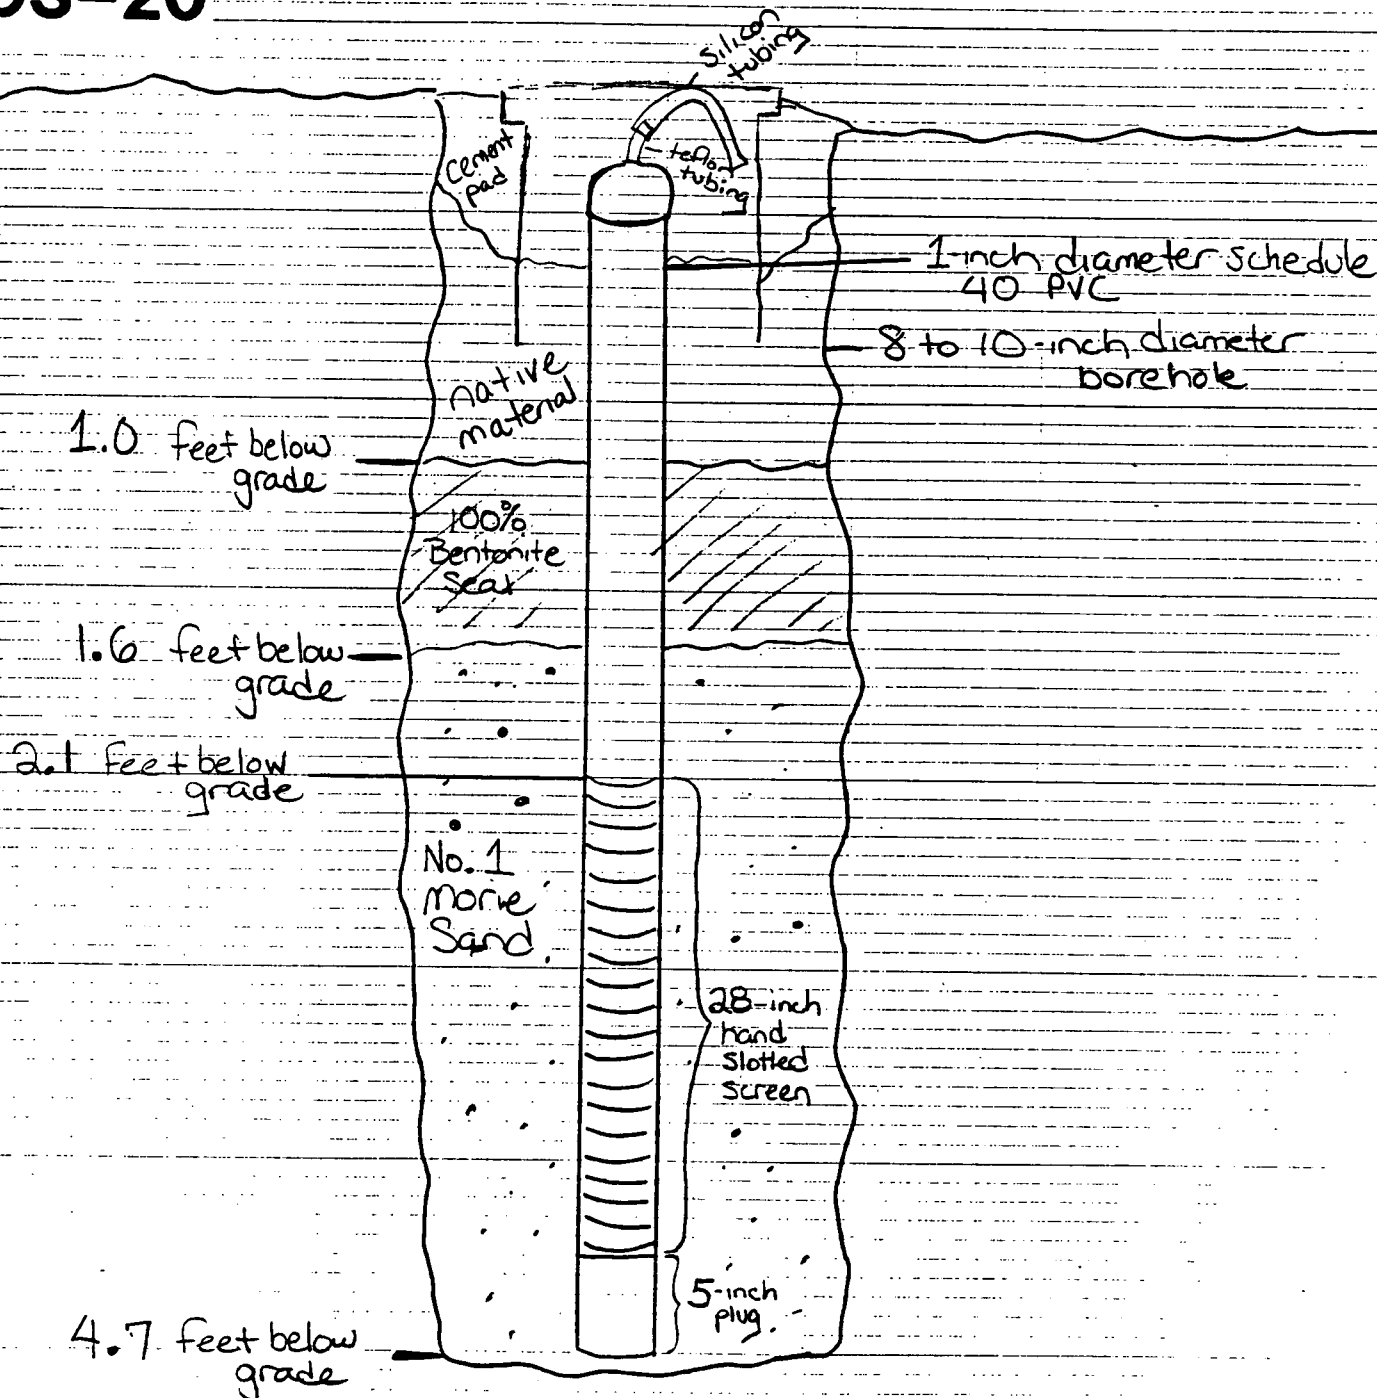 Silicon
tubing
teflon
tubing
Cement
pad
1-inch diameter schedule
40 PVC
8 to 10-inch diameter
borehole
native
material
1.0 feet below
grade
100%
Bentonite
Seal
1.6 feet below
grade
2.1 feet below
grade
No. 1
Morie
Sand
28-inch
hand
slotted
screen
5-inch
plug
4.7 feet below
grade